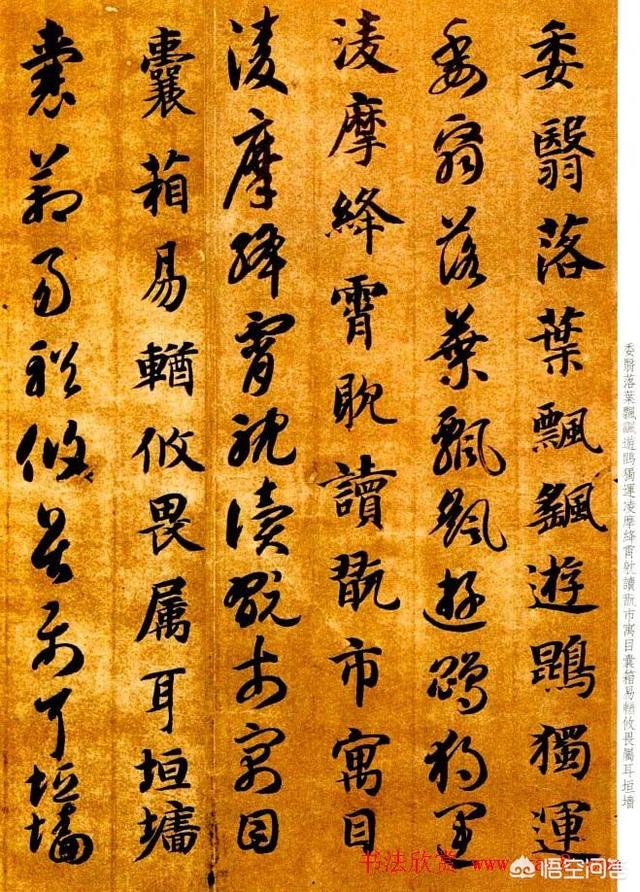 委翳落葉飄飖遊鵾獨運凌摩絳霄耽讀翫市寓目囊箱易輶攸畏屬耳垣墻
委翳落葉飄飖遊鵾獨運
委翳落葉飄飖遊鵾獨運
淩摩絳霄耽讀翫市寓目
淩摩絳霄耽讀翫市寓目
囊箱易輶攸畏属耳垣墻
囊箱易輶攸畏属耳垣墻
书法欣赏
悟空问答